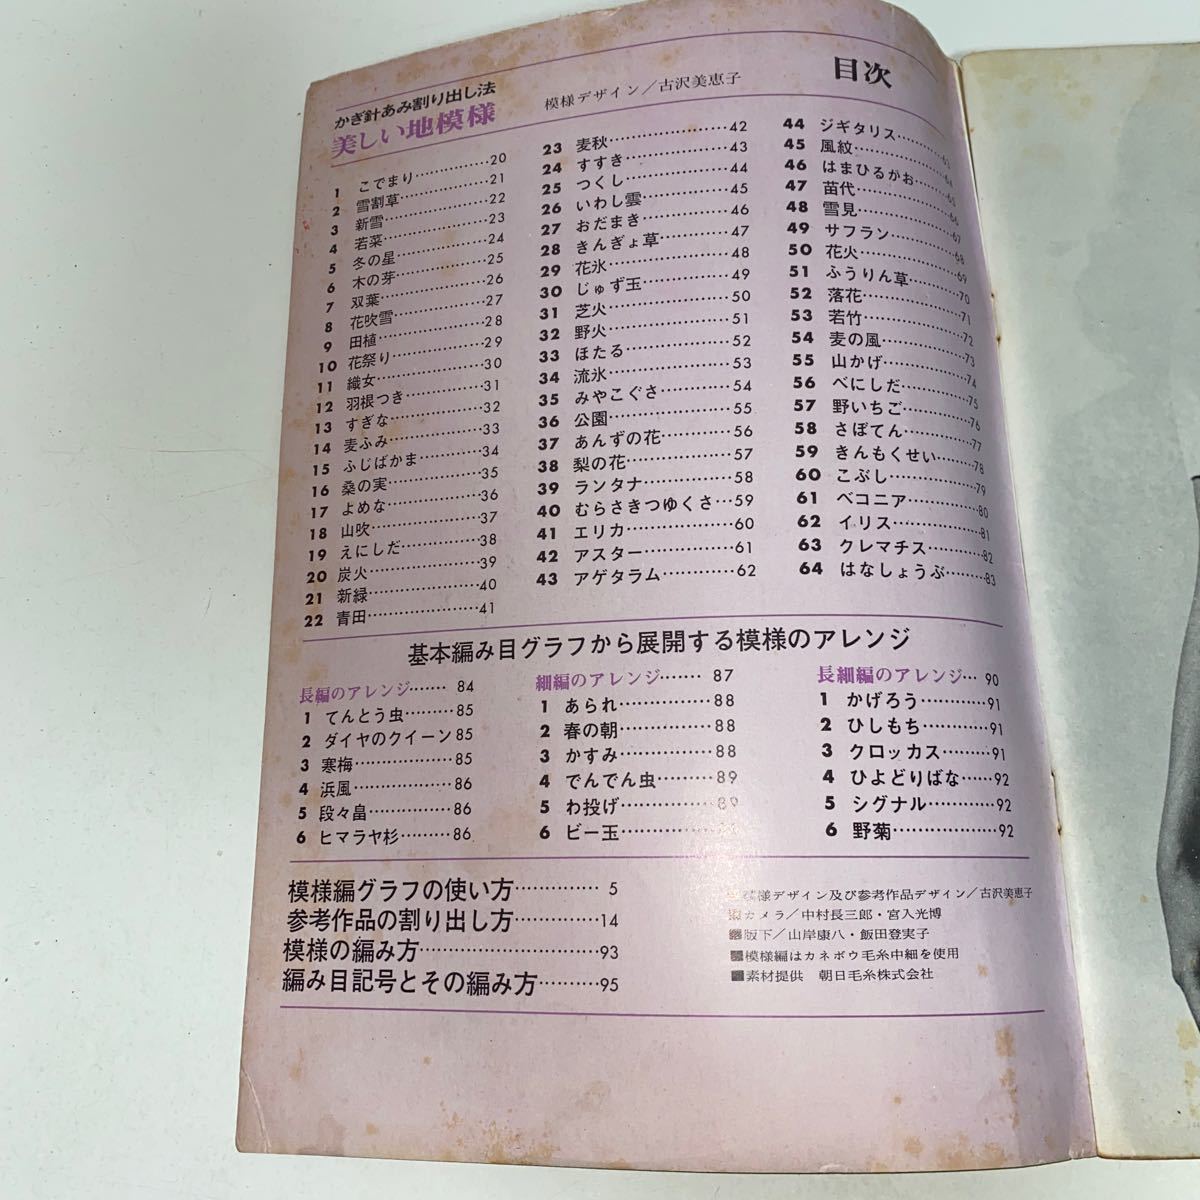 目次
かぎ針あみ割り出し法
美しい地模様
模様デザイン/古沢美恵子
1 こでまり……………20
2 雪割草………………21
3 新雪…………………22
4 若菜…………………23
5 冬の星………………24
6 木の芽………………25
7 双葉…………………26
8 花吹雪………………27
9 田植…………………28
10 花祭り………………29
11 織女…………………30
12 羽根つき……………31
13 すぎな………………32
14 麦ふみ………………33
15 ふじばかま…………34
16 桑の実………………35
17 よめな………………36
18 山吹…………………37
19 えにしだ……………38
20 炭火…………………39
21 新緑…………………40
22 青田…………………41
23 麦秋…………………42
24 すすき………………43
25 つくし………………44
26 いわし雲……………45
27 おだまき……………46
28 きんぎょ草…………47
29 花氷…………………48
30 じゅず玉……………49
31 芝火…………………50
32 野火…………………51
33 ほたる………………52
34 流氷…………………53
35 みやこぐさ…………54
36 公園…………………55
37 あんずの花…………56
38 梨の花………………57
39 ランタナ……………58
40 むらさきつゆくさ…59
41 エリカ………………60
42 アスター……………61
43 アゲタラム…………62
44 ジギタリス…………63
45 風紋…………………64
46 はまひるがお………65
47 苗代…………………66
48 雪見…………………67
49 サフラン……………68
50 花火…………………69
51 ふうりん草…………70
52 落花…………………71
53 若竹…………………72
54 麦の風………………73
55 山かげ………………74
56 べにしだ……………75
57 野いちご……………76
58 さぼてん……………77
59 きんもくせい………78
60 こぶし………………79
61 ベコニア……………80
62 イリス………………81
63 クレマチス…………82
64 はなしょうぶ………83
基本編み目グラフから展開する模様のアレンジ
長編のアレンジ…… 84
1 てんとう虫…………85
2 ダイヤのクイーン 85
3 寒梅…………………85
4 浜風…………………86
5 段々畠………………86
6 ヒマラヤ杉…………86
細編のアレンジ…… 87
1 あられ………………88
2 春の朝………………88
3 かすみ………………88
4 でんでん虫…………89
5 わ投げ………………89
6 ビー玉………………
長細編のアレンジ… 90
1 かげろう……………91
2 ひしもち……………91
3 クロッカス…………91
4 ひよどりばな………92
5 シグナル……………92
6 野菊…………………92
模様編グラフの使い方………… 5
参考作品の割り出し方…………14
模様の編み方……………………93
編み目記号とその編み方………95
模様デザイン及び参考作品デザイン/古沢美恵子
■カメラ/中村長三郎・宮入光博
■版下/山岸康八・飯田登実子
■模様編はカネボウ毛糸中細を使用
■素材提供 朝日毛糸株式会社